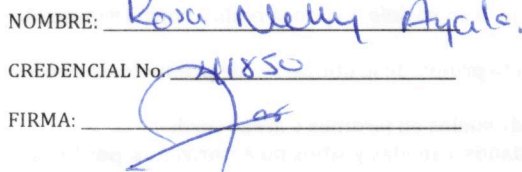 NOMBRE: Rosa Nelly Ayala.
CREDENCIAL No. 41850
FIRMA: